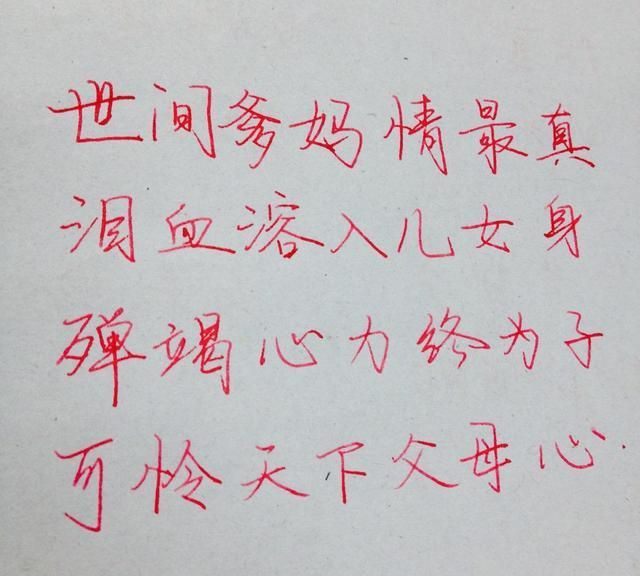 世间爹妈情最真
泪血溶入儿女身
殚竭心力终为子
可怜天下父母心.